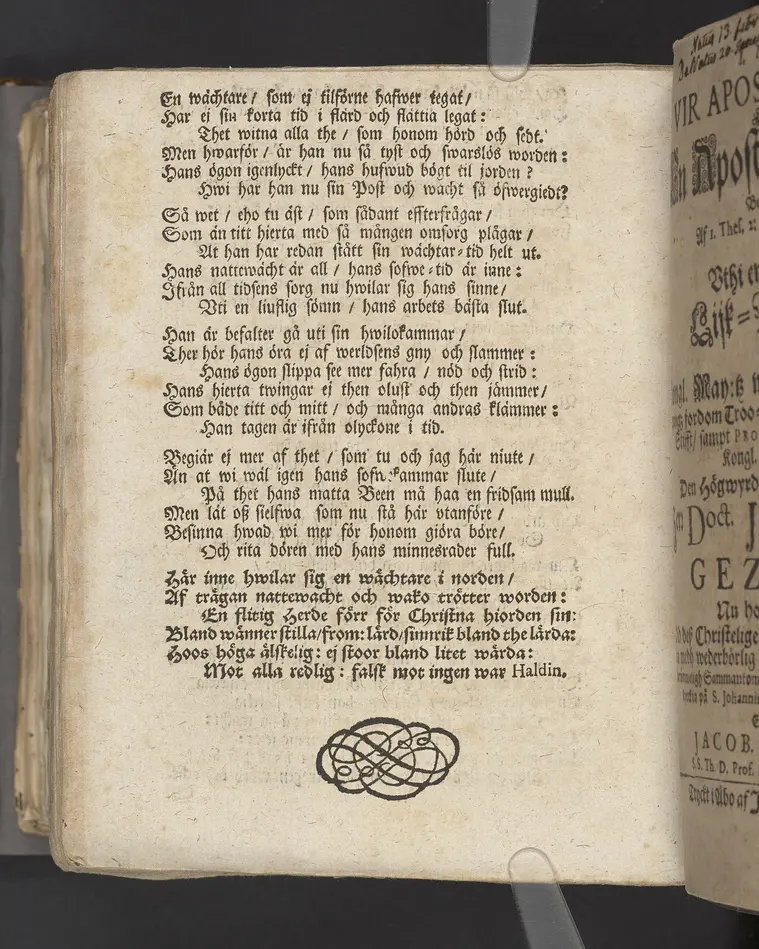 En wächtare / som ej tilförne hafwer legat /
Har ej sin korta tid i flärd och flättia legat:
Thet witna alla the / som honom hörd och sedt.
Men hwarför / är han nu så tyst och swarslös worden:
Hans ögon igenlyckt / hans hufwud bögt til jorden?
Hwi har han nu sin Post och wacht så öfwergiedt?
Så wet / eho tu äst / som sådant effterfrågar /
Som än titt hierta med så mången omsorg plågar /
At han har redan stått sin wächtar-tid helt ut.
Hans nattewacht är all / hans sofwe-tid är inne:
Ifrån all tidsens sorg nu hwilar sig hans sinne /
Uti en liuflig sömn / hans arbets bästa slut.
Han är befalter gå uti sin hwilokammar /
Ther hör hans öra ej af werldsens gny och slammer:
Hans ögon slippa see mer fahra / nöd och strid:
Hans hierta twingar ej then olust och then jämmer /
Som både titt och mitt / och många andras klämmer:
Han tagen är ifrån olyckone i tid.
Begiär ej mer af thet / som tu och jag här niute /
Än at wi wäl igen hans sofwekammar slute /
På thet hans matta Been må haa en fridsam mull.
Men lät oß sielfwa som nu stå här utanföre /
Besinna hwad wi mer för honom giöra böre /
Och rita dören med hans minnesrader full.
Här inne hwilar sig en wächtare i norden /
Af trägan nattewacht och wako trötter worden:
En flitig Herde förr för Christna hiorden sin:
Bland wänner stilla / from: lärd / sinnrik bland the lärda:
Hoos höga älskelig: ej stoor bland litet wärda:
Mot alla redlig: falsk mot ingen war Haldin.
Natus 13 febr
VIR APOS
En Apost
Af 1. Thes. 2:
Uthi e
Lijk=
Kongl.
Den Högwyrd
Doct. J
GEZ
Nu ho
Christelige
wederbörlig
på S. Johanni
JACOB.
S.S. Th. D. Prof.
Tryckt i Åbo af J